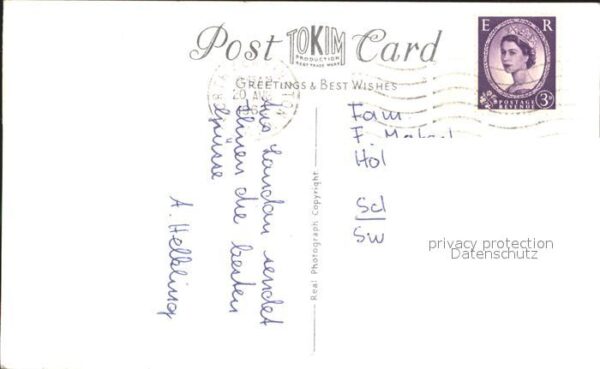 Post TOKIM Card
PRODUCTION
GREETINGS & BEST WISHES
E R
POSTAGE
REVENUE
3D
20 AUG
Aus London sendet
Ihnen die besten
Grüsse
A. Helbling
Real Photograph Copyright.
Fam
F.
Hol
Scl
SW
privacy protection
Datenschutz